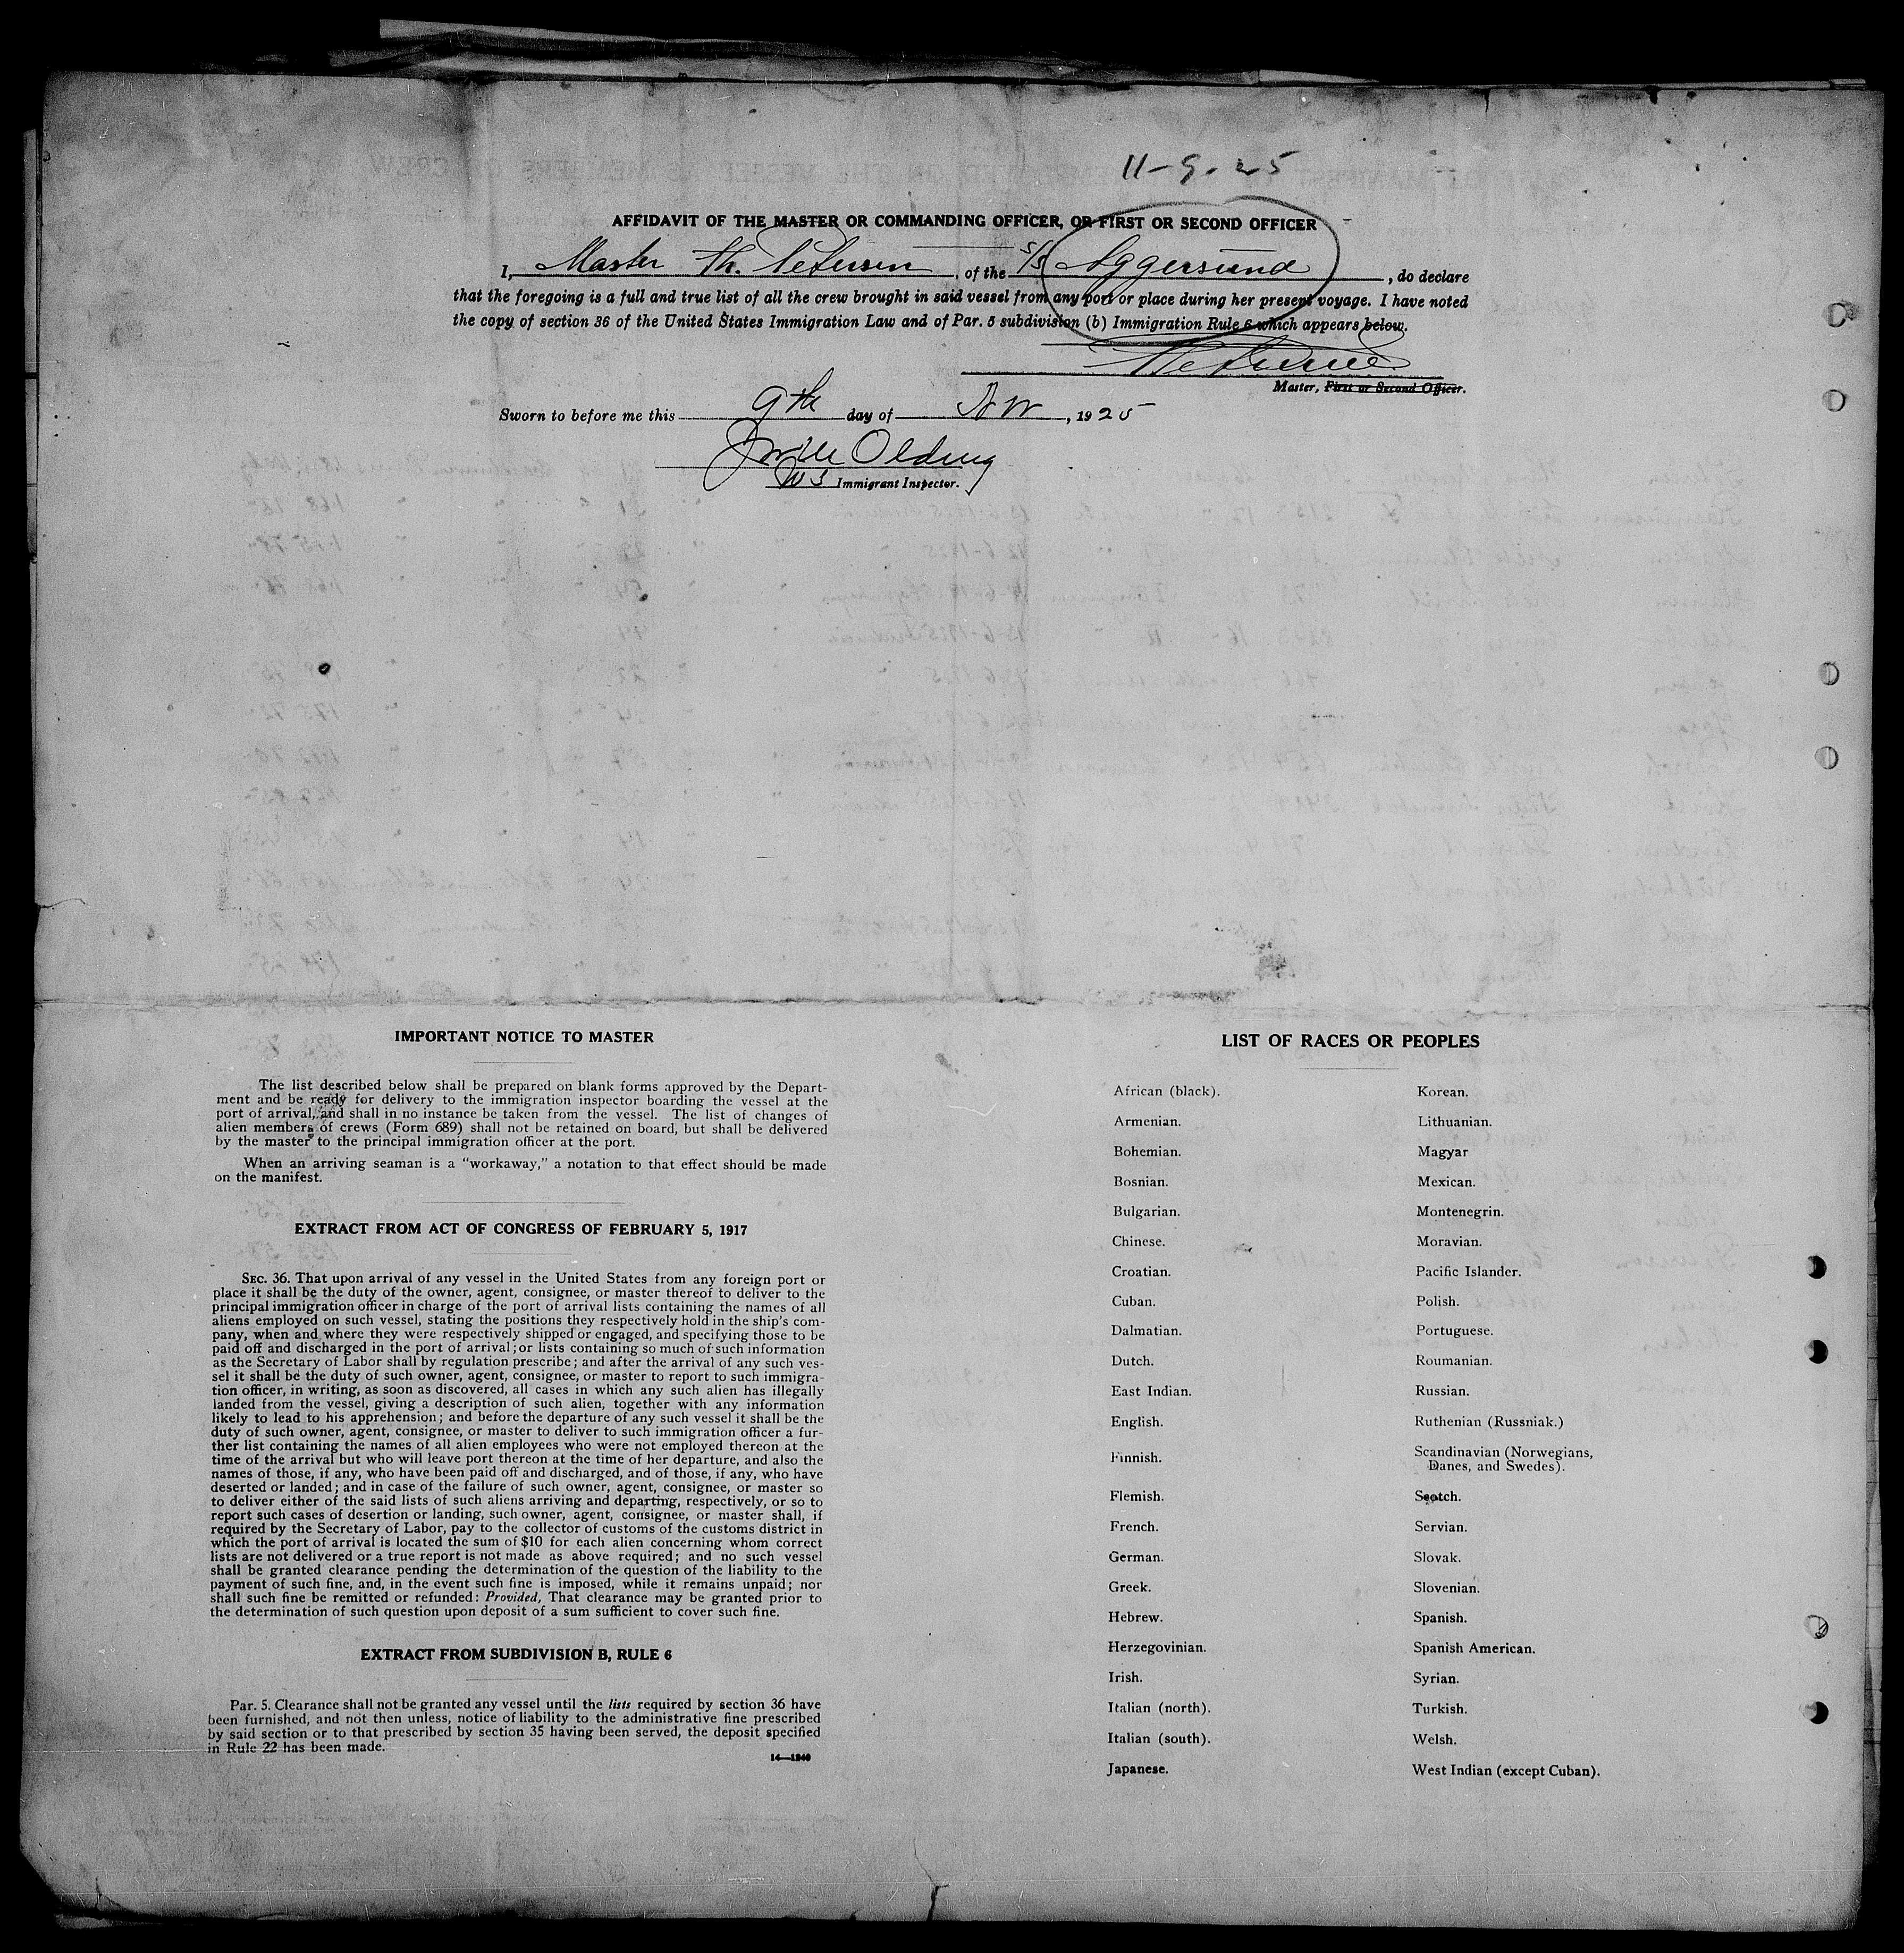 11-9-25
AFFIDAVIT OF THE MASTER OR COMMANDING OFFICER, OR FIRST OR SECOND OFFICER
I, Master Th. Petersen, of the S/S Aggersund, do declare
that the foregoing is a full and true list of all the crew brought in said vessel from any port or place during her present voyage. I have noted
the copy of section 36 of the United States Immigration Law and of Par. 5 subdivision (b) Immigration Rule 6 which appears below.
Master, First or Second Officer.
Sworn to before me this 9th day of Nov, 1925
Olding
US Immigrant Inspector.
IMPORTANT NOTICE TO MASTER
The list described below shall be prepared on blank forms approved by the Depart-
ment and be ready for delivery to the immigration inspector boarding the vessel at the
port of arrival, and shall in no instance be taken from the vessel. The list of changes of
alien members of crews (Form 689) shall not be retained on board, but shall be delivered
by the master to the principal immigration officer at the port.
When an arriving seaman is a "workaway," a notation to that effect should be made
on the manifest.
EXTRACT FROM ACT OF CONGRESS OF FEBRUARY 5, 1917
SEC. 36. That upon arrival of any vessel in the United States from any foreign port or
place it shall be the duty of the owner, agent, consignee, or master thereof to deliver to the
principal immigration officer in charge of the port of arrival lists containing the names of all
aliens employed on such vessel, stating the positions they respectively hold in the ship's com-
pany, when and where they were respectively shipped or engaged, and specifying those to be
paid off and discharged in the port of arrival; or lists containing so much of such information
as the Secretary of Labor shall by regulation prescribe; and after the arrival of any such ves-
sel it shall be the duty of such owner, agent, consignee, or master to report to such immigra-
tion officer, in writing, as soon as discovered, all cases in which any such alien has illegally
landed from the vessel, giving a description of such alien, together with any information
likely to lead to his apprehension; and before the departure of any such vessel it shall be the
duty of such owner, agent, consignee, or master to deliver to such immigration officer a fur-
ther list containing the names of all alien employees who were not employed thereon at the
time of the arrival but who will leave port thereon at the time of her departure, and also the
names of those, if any, who have been paid off and discharged, and of those, if any, who have
deserted or landed; and in case of the failure of such owner, agent, consignee, or master so
to deliver either of the said lists of such aliens arriving and departing, respectively, or so to
report such cases of desertion or landing, such owner, agent, consignee, or master shall, if
required by the Secretary of Labor, pay to the collector of customs of the customs district in
which the port of arrival is located the sum of $10 for each alien concerning whom correct
lists are not delivered or a true report is not made as above required; and no such vessel
shall be granted clearance pending the determination of the question of the liability to the
payment of such fine, and, in the event such fine is imposed, while it remains unpaid; nor
shall such fine be remitted or refunded: Provided, That clearance may be granted prior to
the determination of such question upon deposit of a sum sufficient to cover such fine.
EXTRACT FROM SUBDIVISION B, RULE 6
Par. 5. Clearance shall not be granted any vessel until the lists required by section 36 have
been furnished, and not then unless, notice of liability to the administrative fine prescribed
by said section or to that prescribed by section 35 having been served, the deposit specified
in Rule 22 has been made.
14—1240
LIST OF RACES OR PEOPLES
African (black).
Armenian.
Bohemian.
Bosnian.
Bulgarian.
Chinese.
Croatian.
Cuban.
Dalmatian.
Dutch.
East Indian.
English.
Finnish.
Flemish.
French.
German.
Greek.
Hebrew.
Herzegovinian.
Irish.
Italian (north).
Italian (south).
Japanese.
Korean.
Lithuanian.
Magyar
Mexican.
Montenegrin.
Moravian.
Pacific Islander.
Polish.
Portuguese.
Roumanian.
Russian.
Ruthenian (Russniak.)
Scandinavian (Norwegians,
Danes, and Swedes).
Scotch.
Servian.
Slovak.
Slovenian.
Spanish.
Spanish American.
Syrian.
Turkish.
Welsh.
West Indian (except Cuban).